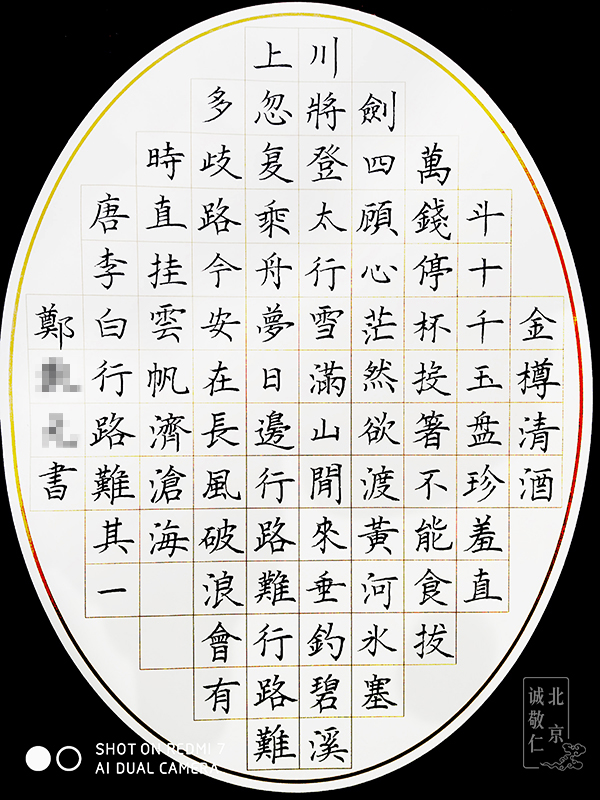 金樽清酒
斗十千玉盘珍羞直
萬錢停杯投箸不能食拔
劍四顧心茫然欲渡黃河氷塞
川將登太行雪滿山閒來垂釣碧溪
上忽复乘舟夢日邊行路難行路難
多歧路今安在長風破浪會有
時直挂雲帆濟滄海
唐李白行路難其一
鄭書
北京
诚敬仁
SHOT ON REDMI 7
AI DUAL CAMERA